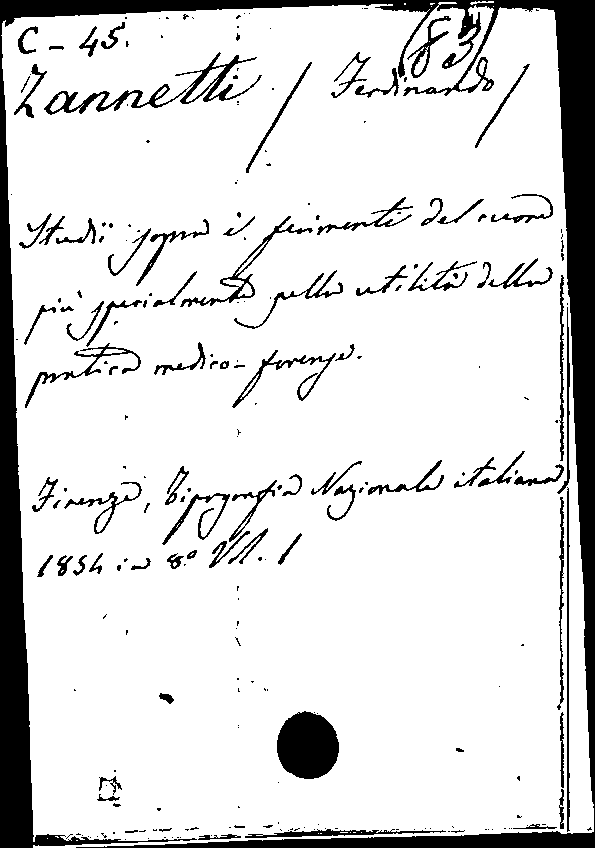 C - 45. (83)
Zannetti / Ferdinando /
Studii sopra i ferimenti del cuore
più specialmente nella utilità della
pratica medico-forense.
Firenze, Tipografia Nazionale italiana,
1854 in 8° Vol. 1